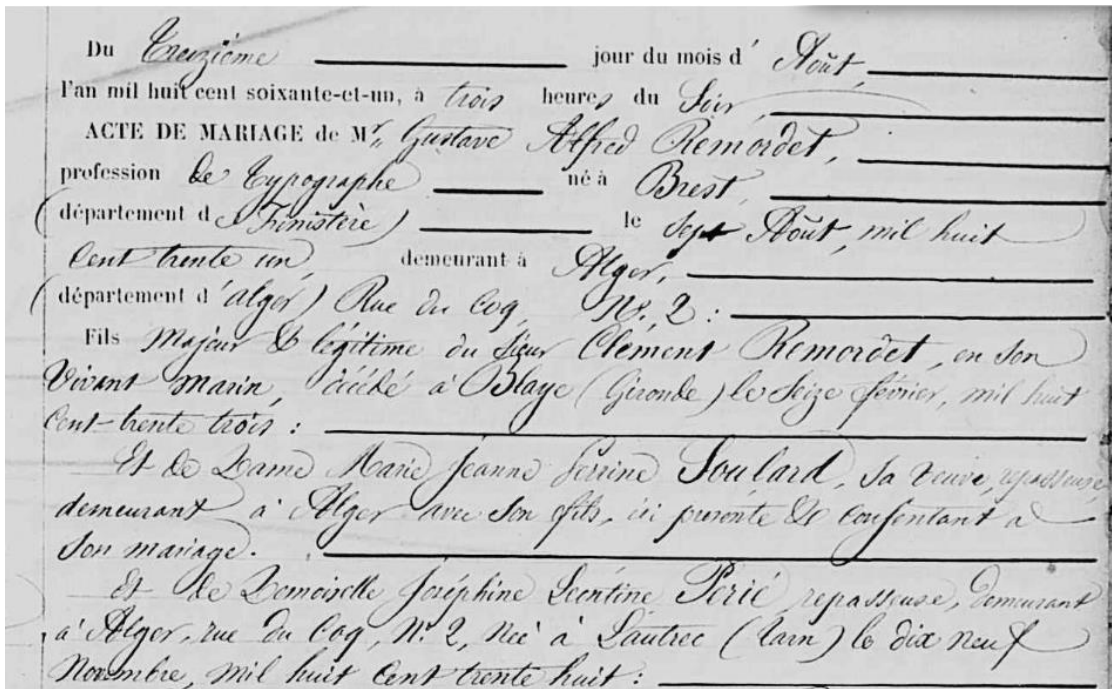 Du Treizième jour du mois d' Août,
l'an mil huit cent soixante-et-un, à trois heures du Soir,
ACTE DE MARIAGE de Mr. Gustave Alfred Remordet,
profession de Typographe né à Brest,
(département du Finistère) le Sept Août, mil huit
Cent trente un, demeurant à Alger,
(département d'alger) Rue du Coq, No. 2 :
Fils Majeur & légitime du Sieur Clément Remordet, en son
Vivant marin, décédé à Blaye (Gironde) le Seize février, mil huit
Cent-trente trois :
Et de Dame Marie Jeanne Perrine Soulard, Sa veuve, repasseuse,
demeurant à Alger avec son fils, ici présente & consentant à
Son mariage.
Et de Demoiselle Joséphine Léontine Périé repasseuse, demeurant
à Alger, rue du Coq, No. 2, née à Lautrec (tarn) le dix neuf
Novembre, mil huit Cent trente huit :